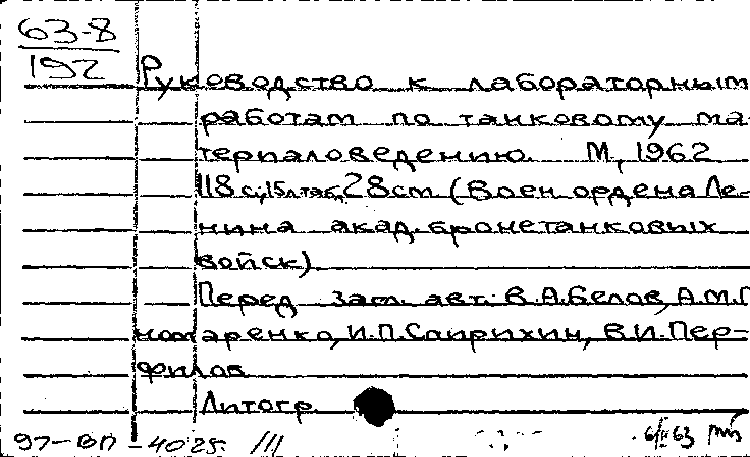 63-8
192
Руководство к лабораторным
работам по танковому ма-
териаловедению. М., 1962
118 с.; 15 л. таб. 28 см (Воен. ордена Ле-
нина акад. бронетанковых
войск)
Перед загл. авт.: В.А.Белов, А.М.П
номаренко, И.П.Спирихин, В.И.Пер-
филов
Литогр.
97-ВП-4025. III
63